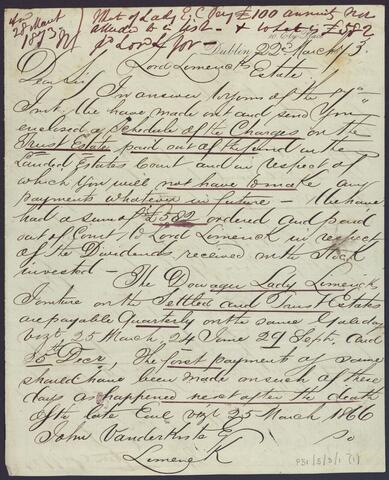 28 March 1873
Note of Lady E. C. Pery £100 annuity not
alluded to in just & what of £582
pd Lord L for
Dublin 22nd March / 3.
Lord Limerick
Estate
Dear Sir
In answer to yours of the 7th
Inst We have made out and send You
enclosed a Schedule of the Charges on the
Trust Estate paid out of the fund in the
Landed Estates Court and in respect of
which You will not have to make any
payments whatever in future – We have
had a sum of £582 ordered and paid
out of Court to Lord Limerick in respect
of the Dividends received on the Stock
invested –
The Dowager Lady Limerick
Jointure on the Settled and Trust Estates
are payable Quarterly on the same Gale days
vizt 25 March, 24 June 29 Sept, and
25th Decr, The first payments of same
should have been made on such of these
days as happened next after the death
of the late Earl vizt 25 March 1866
John Vanderkiste Eq
Limerick
So
P51/5/3/1 (1)